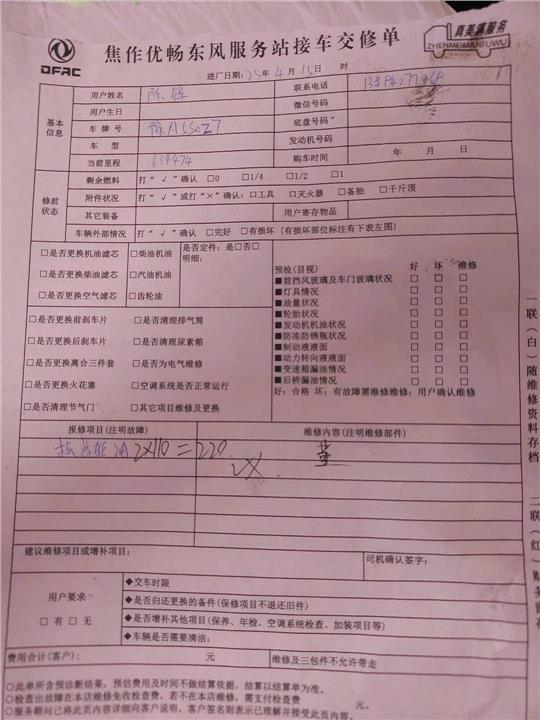 DFAC
焦作优畅东风服务站接车交修单
真美富服务
ZHENMEIMANFUWU
进厂日期：25年4月15日 时
基本信息
用户姓名 陈
联系电话
用户生日
微信号码
车牌号 豫A55027
底盘号码
车型
发动机号码
当前里程 634474
购车时间 年 月 日
修前状态
剩余燃料 打“√”确认 □0 □1/4 □1/2 □1
附件状况 打“√”或打“×”确认：□工具 □灭火器 □备胎 □千斤顶
其它装备
用户寄存物品
车辆外部情况 打“√”确认 □完好 □有损坏（有损坏部位标注有下表左图）
□是否更换机油滤芯 □柴油机油
□是否更换柴油滤芯 □汽油机油
□是否更换空气滤芯 □齿轮油
是否定件：是□否□
明细：
□是否更换前刹车片 □是否清理排气筒
□是否更换后刹车片 □是否清理尿素箱
□是否更换离合三件套 □是否为电气维修
□是否更换火花塞 □空调系统是否正常运行
□是否清理节气门 □其它项目维修及更换
预检(目视) 好 坏 维修
■前挡风玻璃及车门玻璃状况 □ □ □
■灯具情况 □ □ □
■油量状况 □ □ □
■轮胎状况 □ □ □
■发动机机油状况 □ □ □
■防冻防锈瓶状况 □ □ □
■制动液液面 □ □ □
■动力转向液液面 □ □ □
■变速箱漏油情况 □ □ □
■后桥漏油情况 □ □ □
好：合格 坏：有故障需维修维修：用户确认维修
报修项目(注明故障)
维修内容(注明维修部件)
油 2×110=220
建议维修项目或增补项目：
司机确认签字：
用户要求
□有 □无
◆交车时限
◆是否归还更换的备件(保修项目不退还旧件)
◆是否增补其他项目(保养、年检、空调系统检查、加装项目等)
◆车辆是否需要清洁：
费用合计(客户)： 元
维修及三包件不允许带走
○此单所含预诊断结果，预估费用及时间不做结算依据，结算以结算单为准。
○检查出故障在本店维修免收检查费，若不在本店维修，需支付检查费 元。
○服务顾问已将此页内容详细向客户说明，客户签名则表示已理解并接受此页内容。
一联(白)随维修资料存档
二联(红)